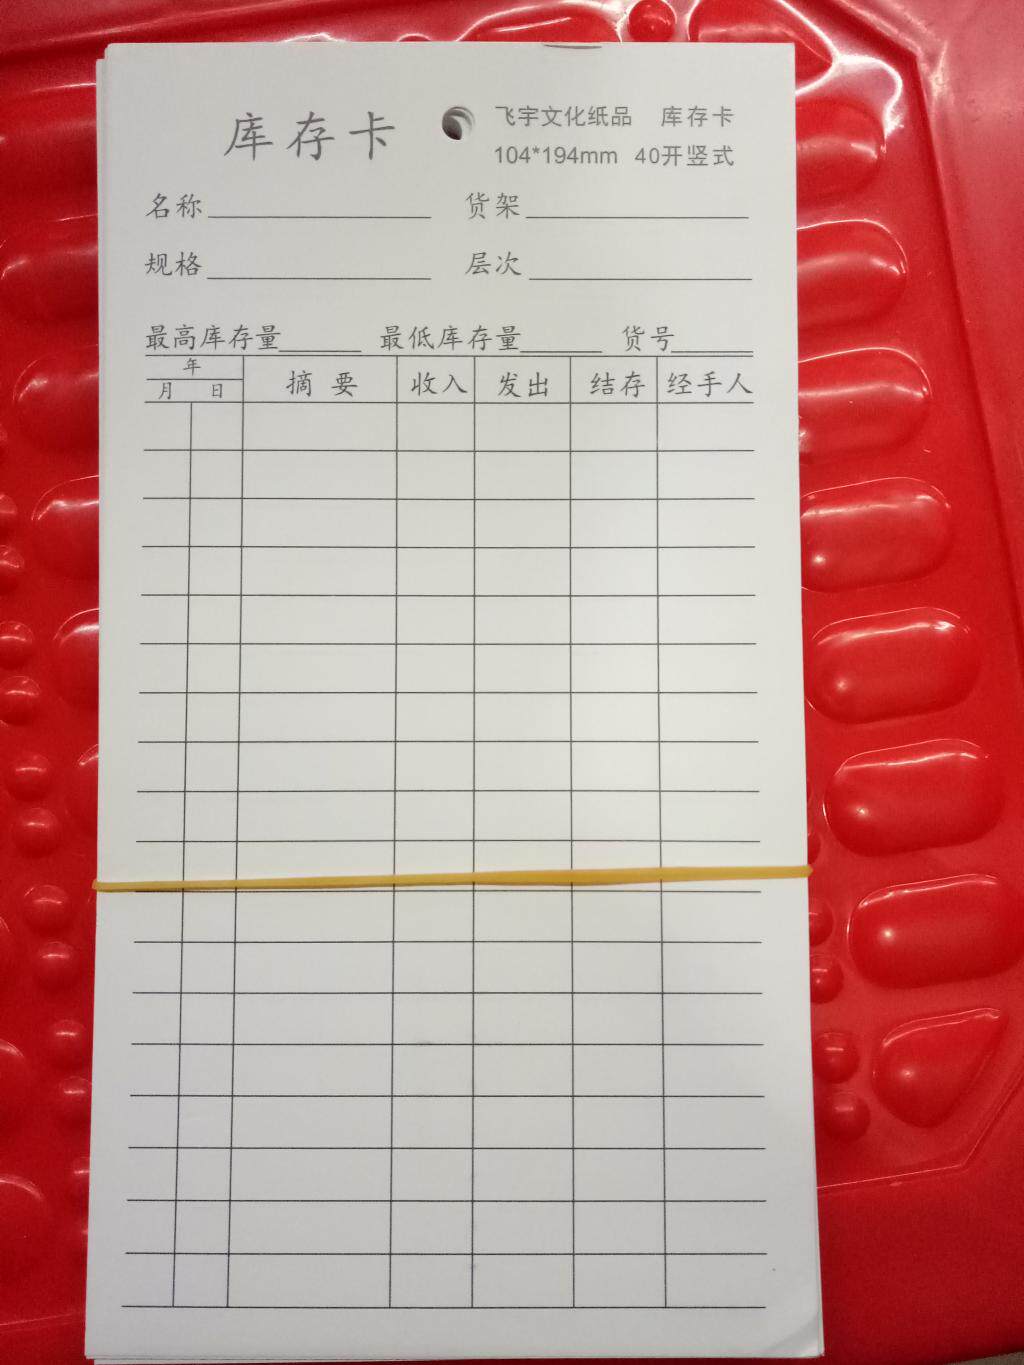 库存卡 飞宇文化纸品 库存卡
104*194mm 40开竖式
名称 货架
规格 层次
最高库存量 最低库存量 货号
年
月 日 摘要 收入 发出 结存 经手人